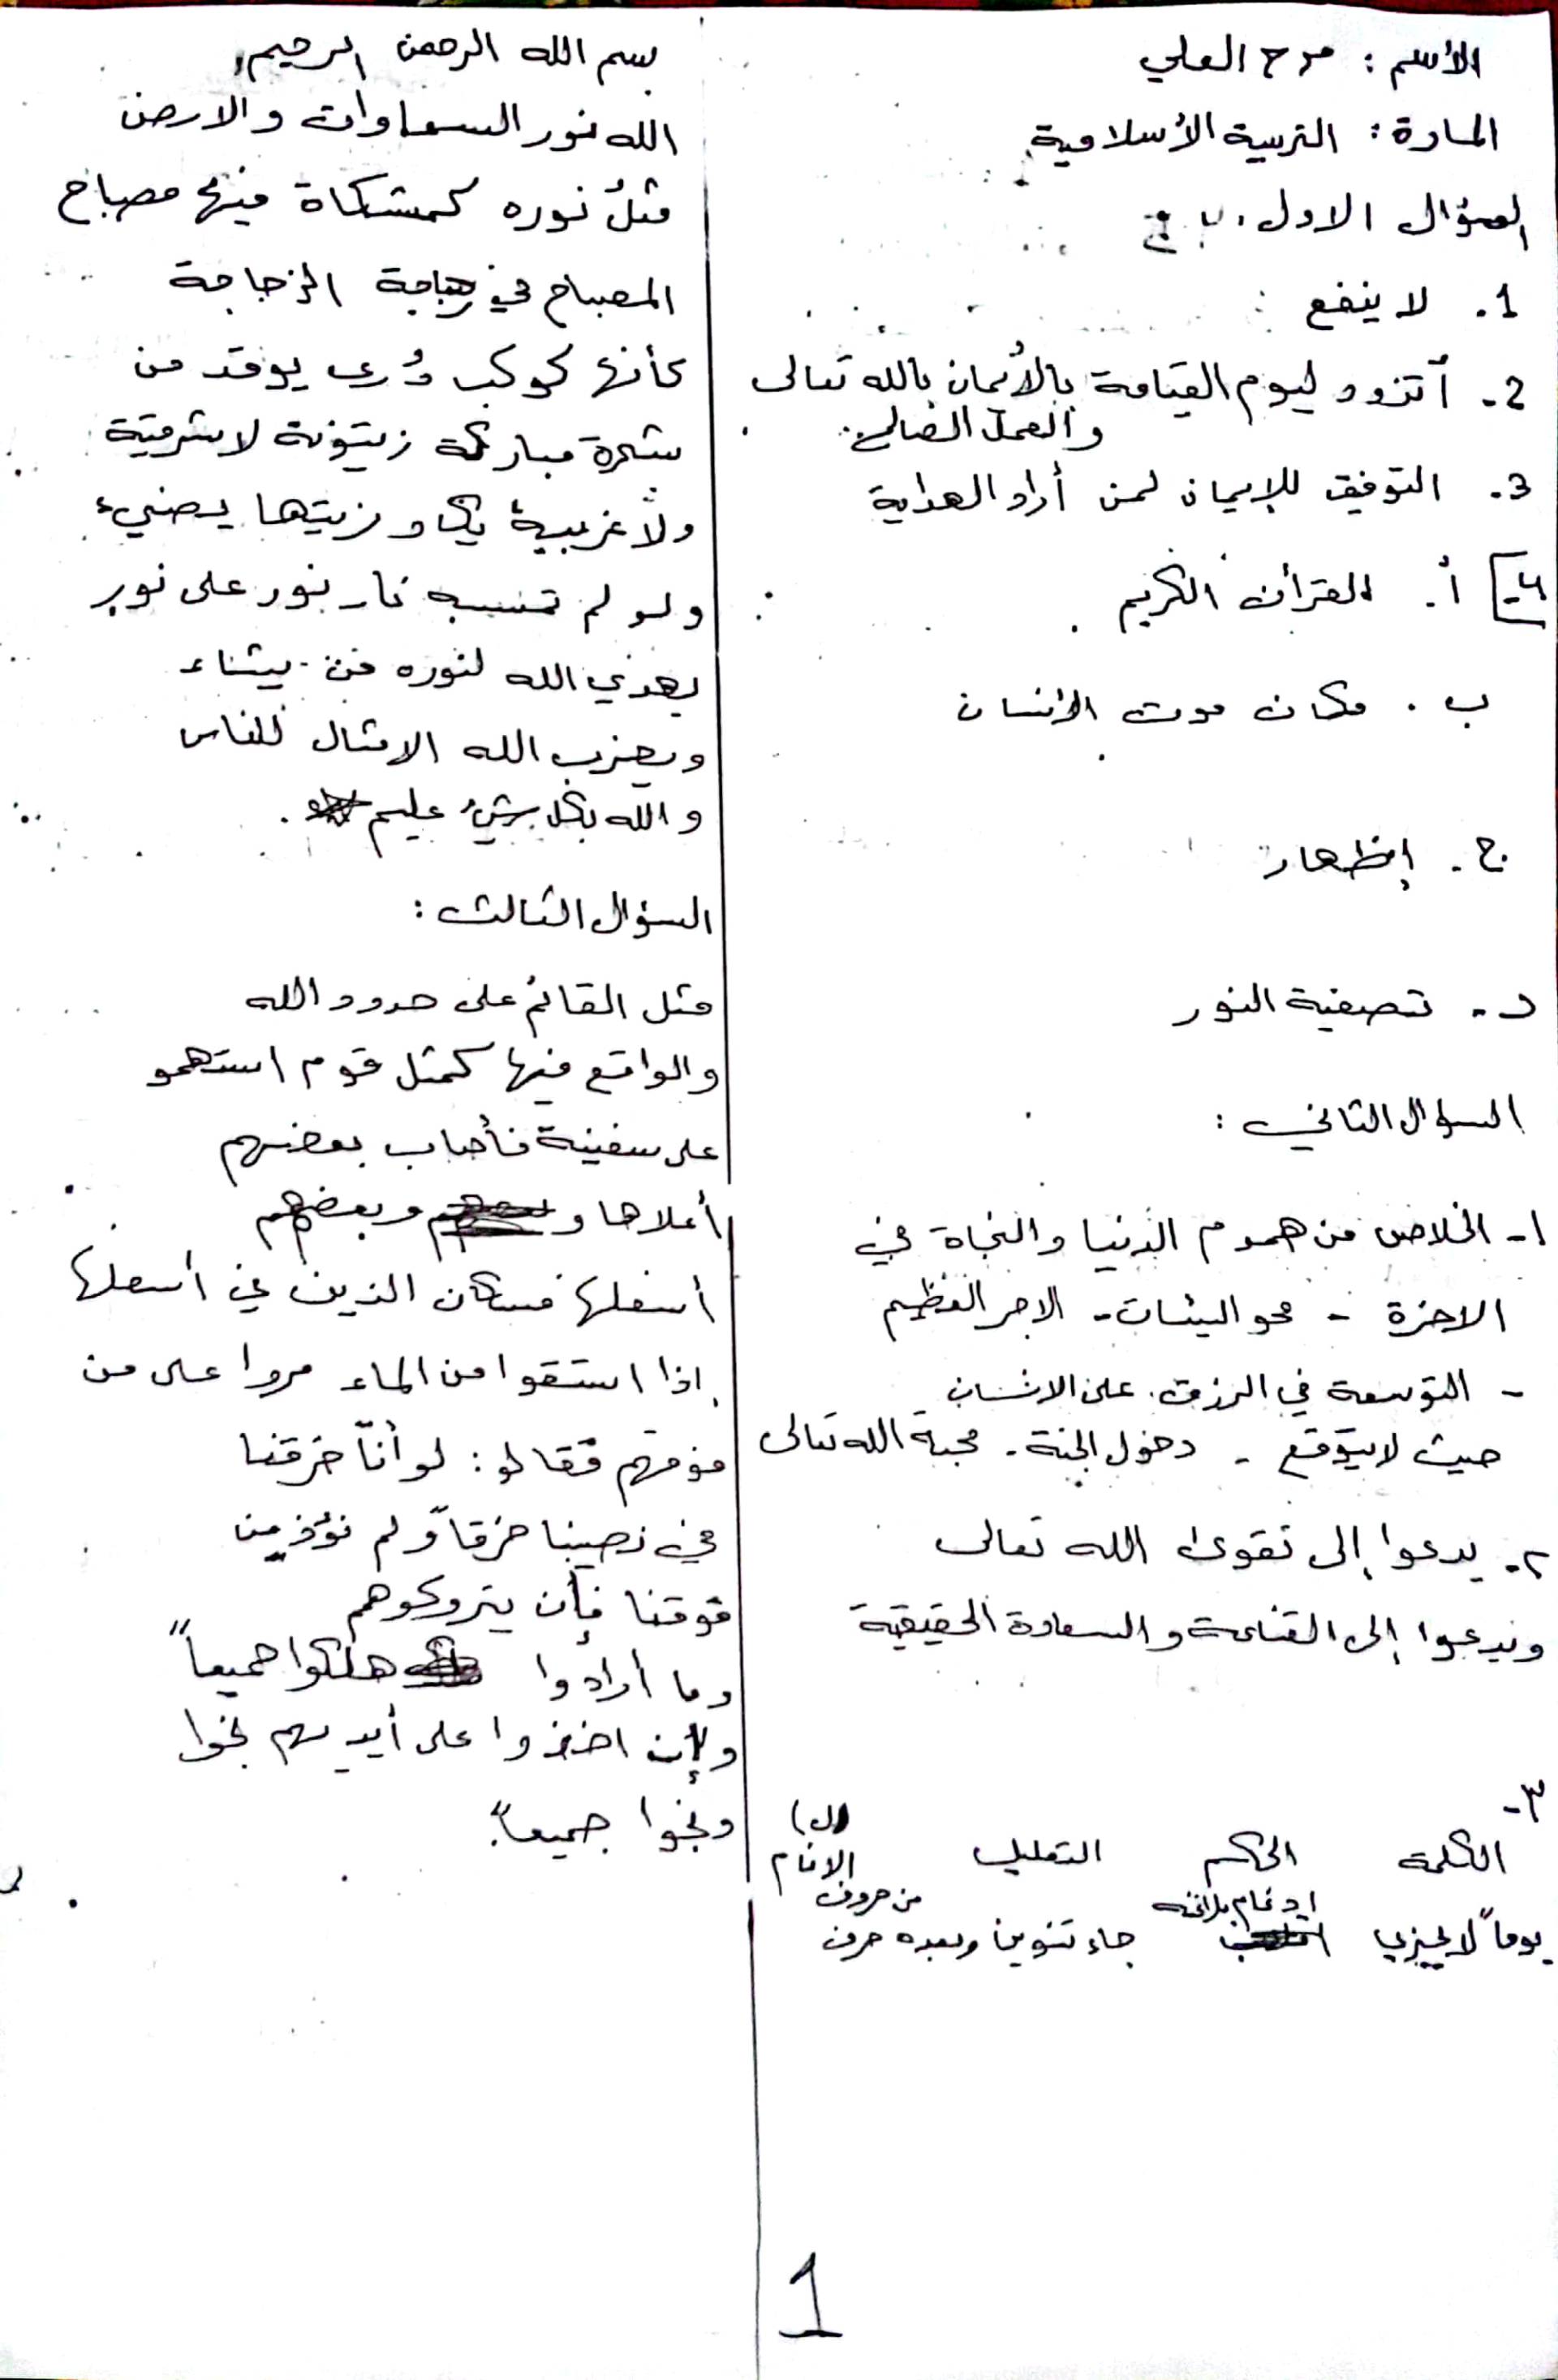 الأسم : مرح العلي
المادة : التربية الأسلامية
السؤال الاول
1. لا ينفع
2- أتزود ليوم القيامة بالأيمان بالله تعالى
والعمل الصالح
3- التوفيق للإيمان لمن أراد الهداية
4- أ. القرأن الكريم .
ب . مكان موت الأنسان
ج . إظهار
د - تصفية النور
السؤال الثاني :
1- الخلاص من هموم الدنيا والنجاة في
الاخرة - محو السئات - الاجر العظيم
- التوسعة في الرزق على الانسان
حيث لا يتوقع - دخول الجنة - محبة الله تعالى
٢- يدعوا إلى تقوى الله تعالى
ويدعوا إلى القناعة والسعادة الحقيقية
٣-
الكلمة الحكم التعليل
يوماً لا يجزي ادغام بلاغنه جاء تنوين وبعده حرف
من حروف
الادغام
(ل)
بسم الله الرحمن الرحيم
الله نور السماوات والارض
مثلُ نوره كمشكاة فيها مصباح
المصباح في زجاجة الزجاجة
كأنها كوكب دُري يوقد من
شجرة مباركة زيتونة لا شرقية
ولا غربية يكاد زيتها يضيء
ولو لم تمسسه نار نور على نور
يهدي الله لنوره من يشاء
ويضرب الله الامثال للناس
والله بكل شيءُ عليم .
السؤال الثالث :
مثل القائم على حدود الله
والواقع فيها كمثل قوم استهمو
على سفينة فأصاب بعضهم
أعلاها و وبعضهم
أسفلها فكان الذين في أسفلها
اذا استقوا من الماء مروا على من
فوقهم فقالو : لو أنّا خرقنا
في نصيبنا خرقاً ولم نؤذ من
فوقنا فإن يتروكوهم
وما أرادوا هلكوا جميعاً
وإن اخذوا على أيديهم نجوا
ونجوا جميعاً.
1